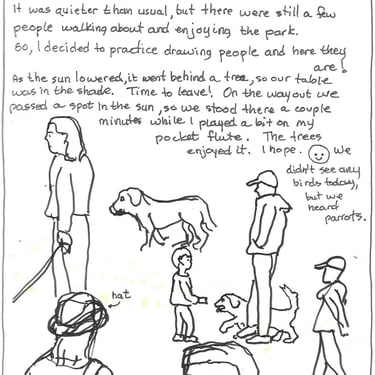 It was quieter than usual, but there were still a few
people walking about and enjoying the park.
So, I decided to practice drawing people and here they
are!
As the sun lowered, it went behind a tree, so our table
was in the shade. Time to leave! On the way out we
passed a spot in the sun, so we stood there a couple
minutes while I played a bit on my
pocket flute. The trees
enjoyed it. I hope. We
didn't see any
birds today,
but we
heard
parrots.
hat